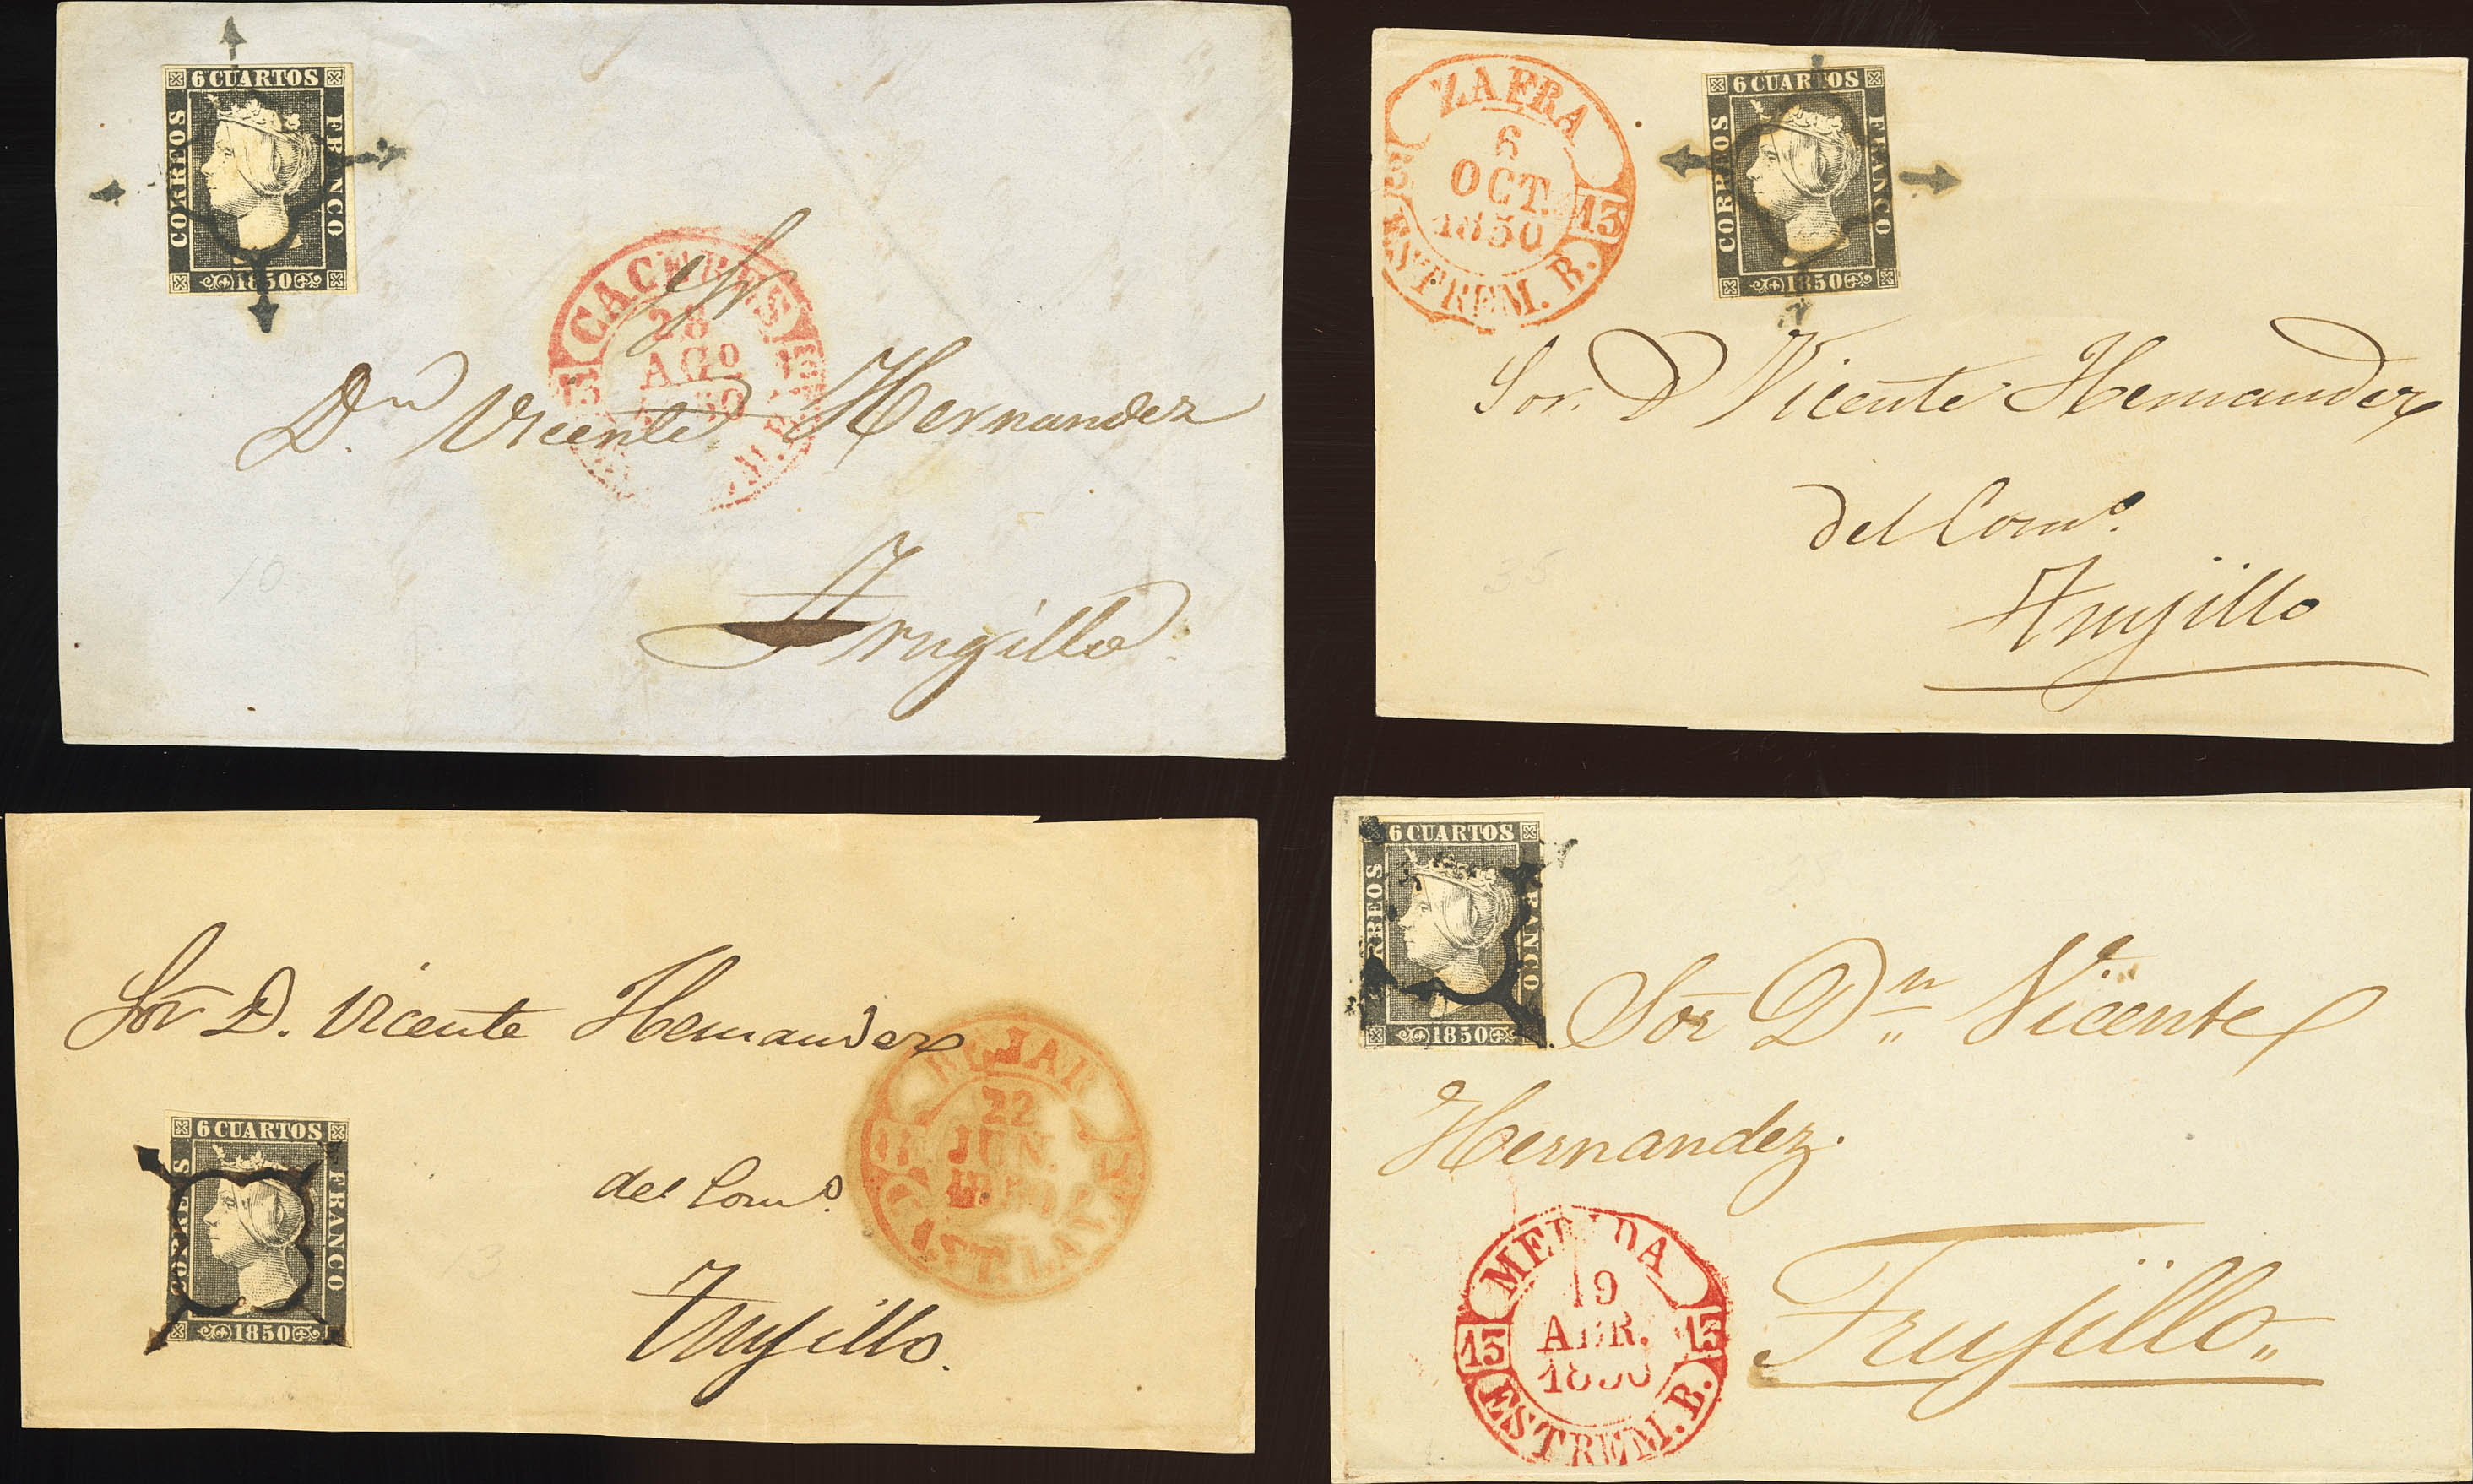 6 CUARTOS
CORREOS
FRANCO
1850
CACERES
28
AGO
13
13
Dn Vicente Hernandez
Trugillo
10
ZAFRA
6
OCT.
1850
13
ESTREM. B.
6 CUARTOS
CORREOS
FRANCO
1850
Sor. D Vicente Hernandez
del Como.
Trujillo
35
Sor D. Vicente Hernandez
BEJAR
22
JUN.
6 CUARTOS
CORREOS
FRANCO
1850
del Como.
Trujillo.
13
6 CUARTOS
CORREOS
FRANCO
1850
Sor Dn Vicente
Hernandez.
MERIDA
19
ABR.
1850
13
13
ESTREM. B.
Trujillo